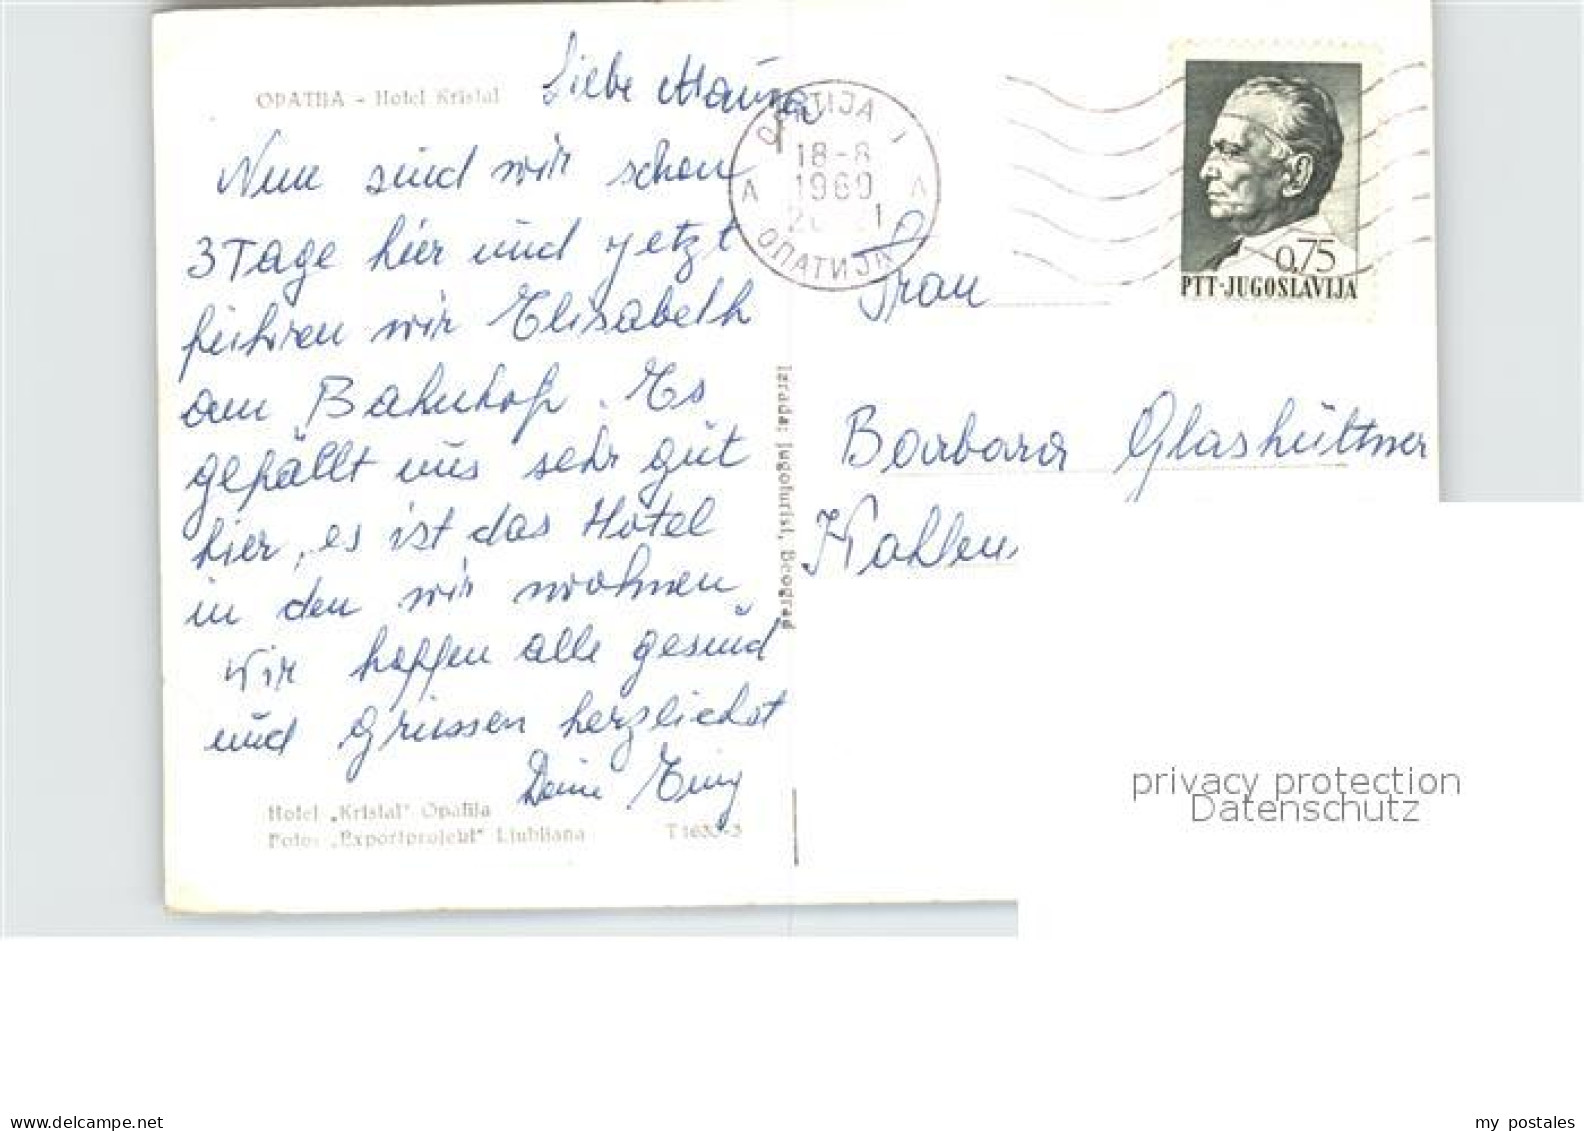 OPATIJA - Hotel Kristal
Liebe Mama
Nun sind wir schon
3 Tage hier und jetzt
führen wir Elisabeth
am Bahnhof. Es
gefällt uns sehr gut
hier, es ist das Hotel
in den wir wohnen
Wir hoffen alle gesund
und Grüssen herzlichst
Deine
Hotel „Kristal" Opatija
Foto: „Exportprojekt" Ljubljana
Izrada: Jugoturist, Beograd
ОПАТИЈА 1
18-8
1969
A A
OPATIJA
0,75
PTT-JUGOSLAVIJA
Frau
Barbara Glashüttner
privacy protection
Datenschutz
delcampe.net
my postales